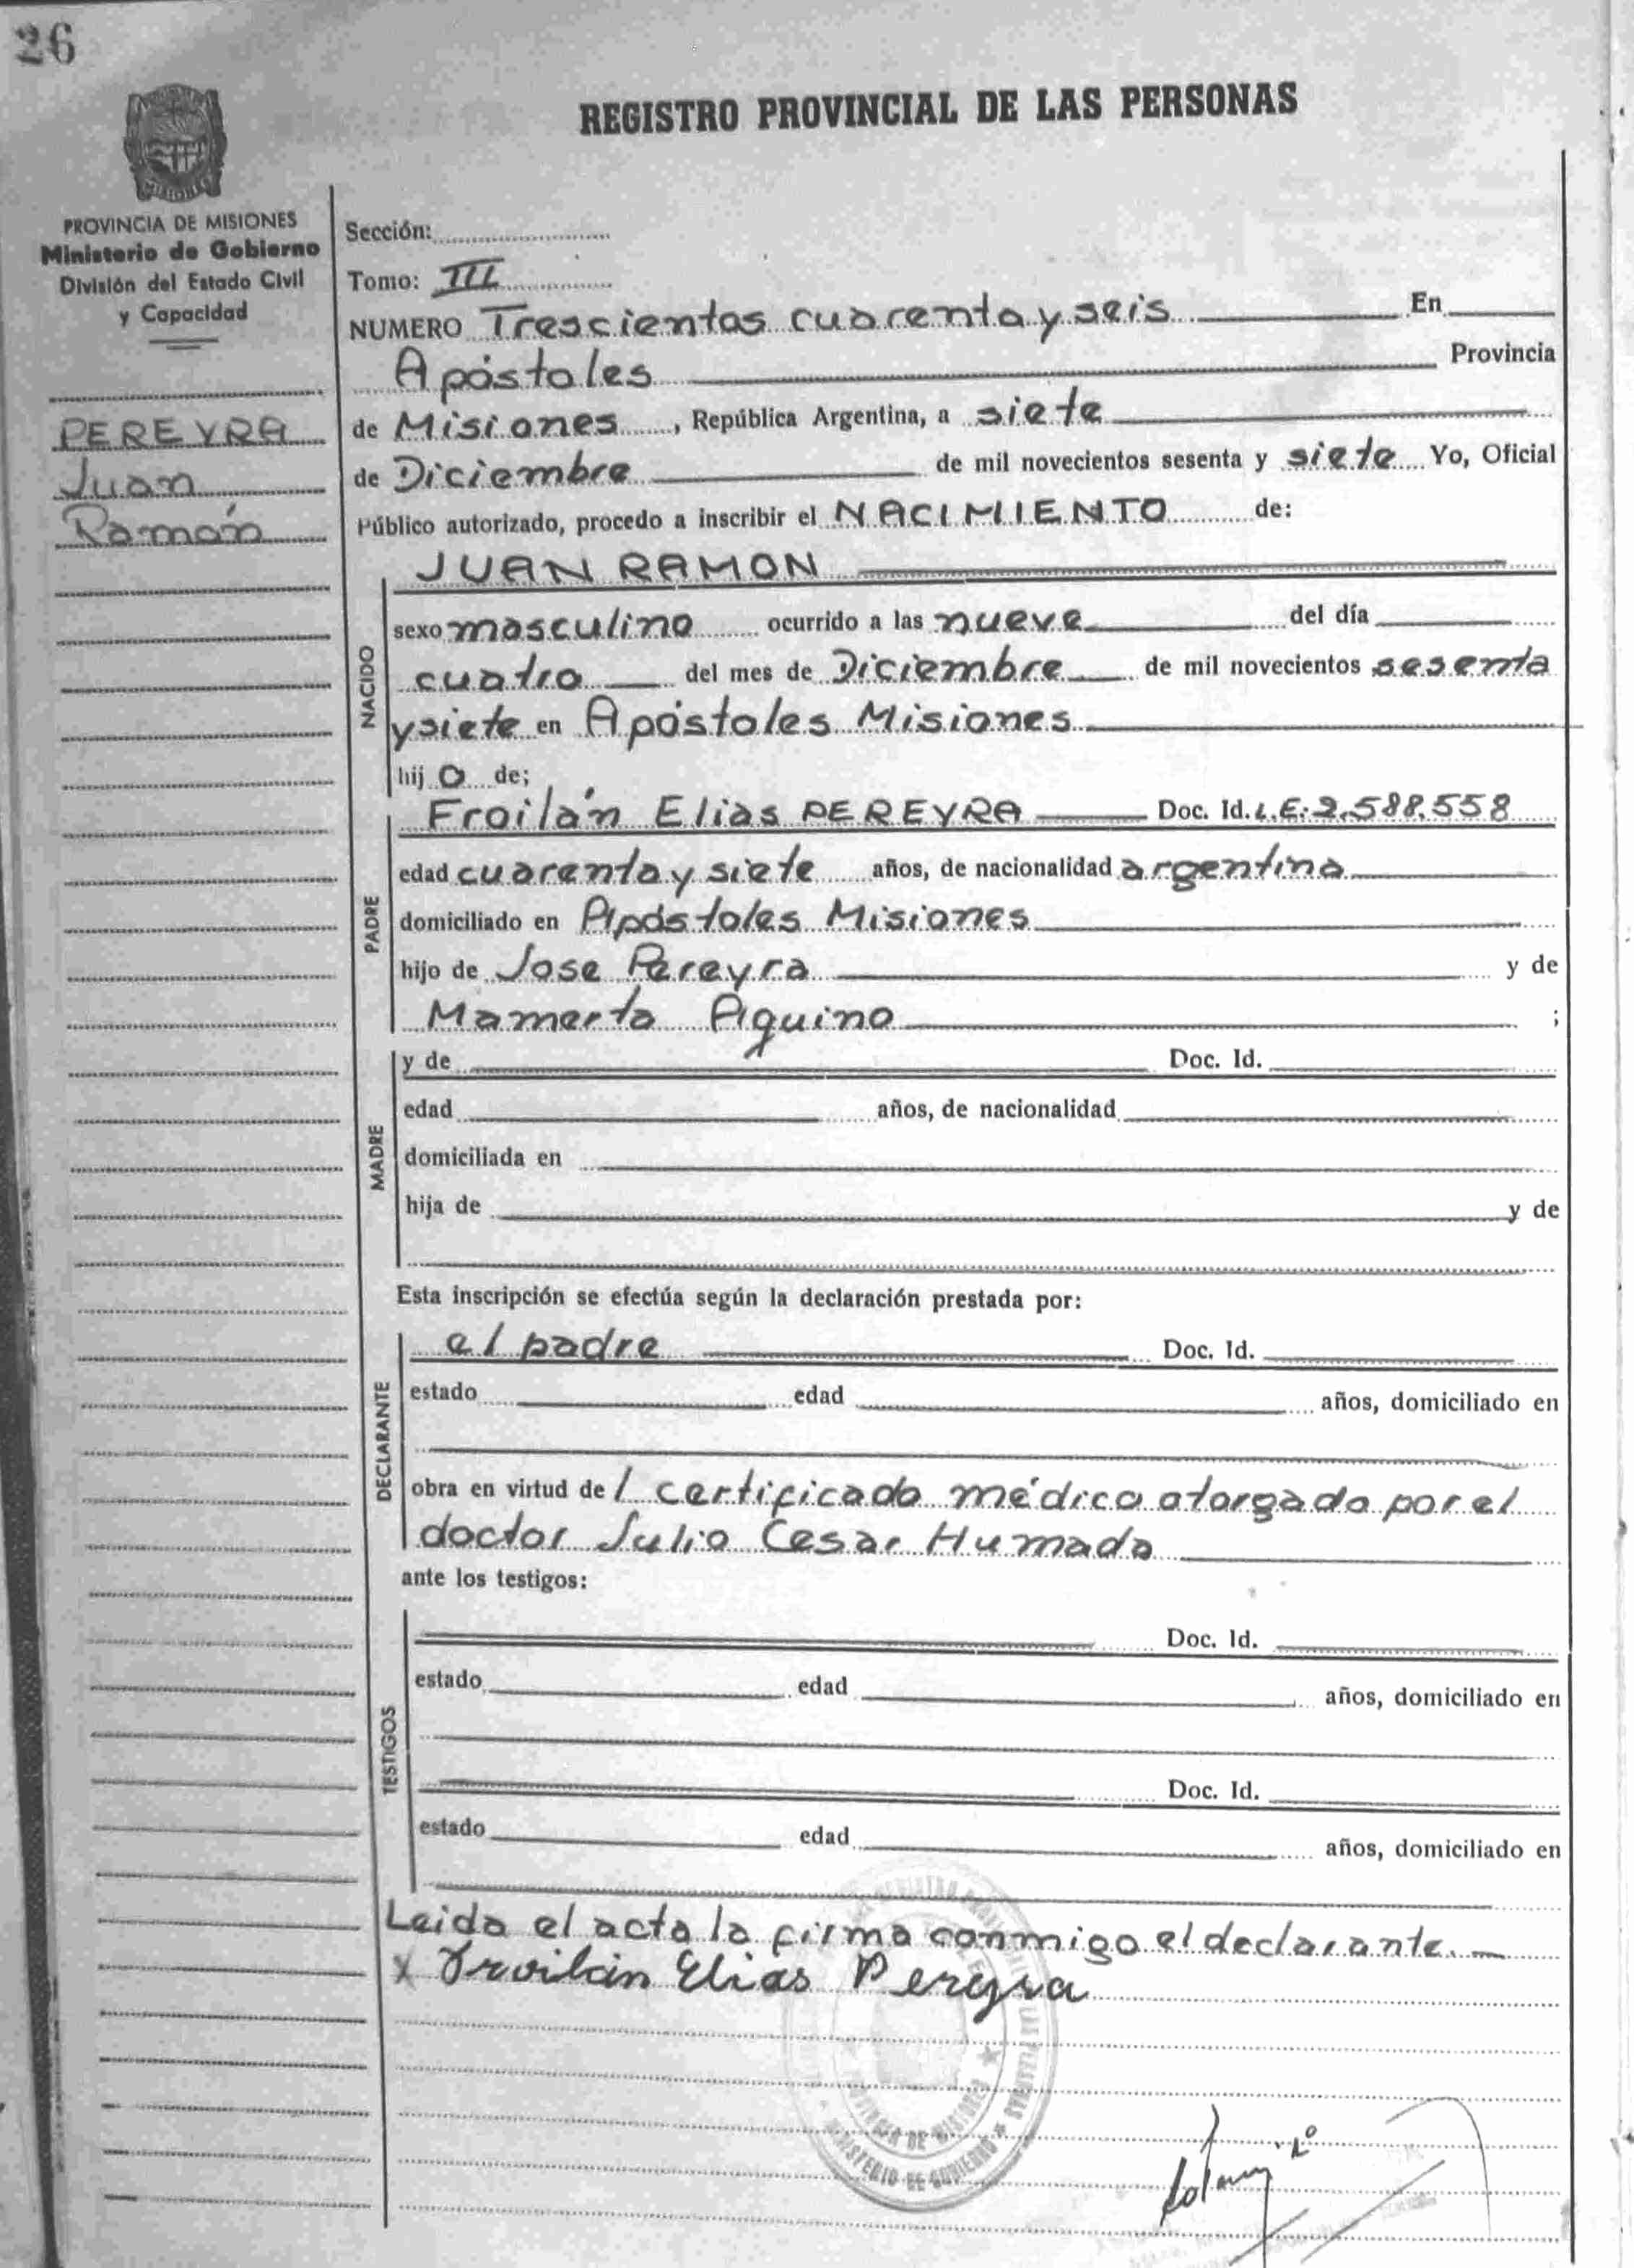 26
REGISTRO PROVINCIAL DE LAS PERSONAS
MISIONES
PROVINCIA DE MISIONES
Ministerio de Gobierno
División del Estado Civil
y Capacidad
PEREYRA
Juan
Ramón
Sección:
Tomo: III
NUMERO Trescientos cuarenta y seis En
Apóstoles Provincia
de Misiones, República Argentina, a siete
de Diciembre de mil novecientos sesenta y siete Yo, Oficial
Público autorizado, procedo a inscribir el NACIMIENTO de:
JUAN RAMON
NACIDO
sexo masculino ocurrido a las nueve del día
cuatro del mes de Diciembre de mil novecientos sesenta
y siete en Apóstoles Misiones
hijo de;
PADRE
Froilán Elias PEREYRA Doc. Id. L.E: 2.588.558
edad cuarenta y siete años, de nacionalidad argentina
domiciliado en Apóstoles Misiones
hijo de Jose Pereyra y de
Mamerta Aquino ;
MADRE
y de Doc. Id.
edad años, de nacionalidad
domiciliada en
hija de y de
Esta inscripción se efectúa según la declaración prestada por:
DECLARANTE
el padre Doc. Id.
estado edad años, domiciliado en
obra en virtud del certificado médico otorgado por el
doctor Julio Cesar Humada
ante los testigos:
TESTIGOS
Doc. Id.
estado edad años, domiciliado en
Doc. Id.
estado edad años, domiciliado en
Leida el acta la firma conmigo el declarante.
x Froilán Elias Pereyra
PROVINCIA DE MISIONES
MINISTERIO DE GOBIERNO